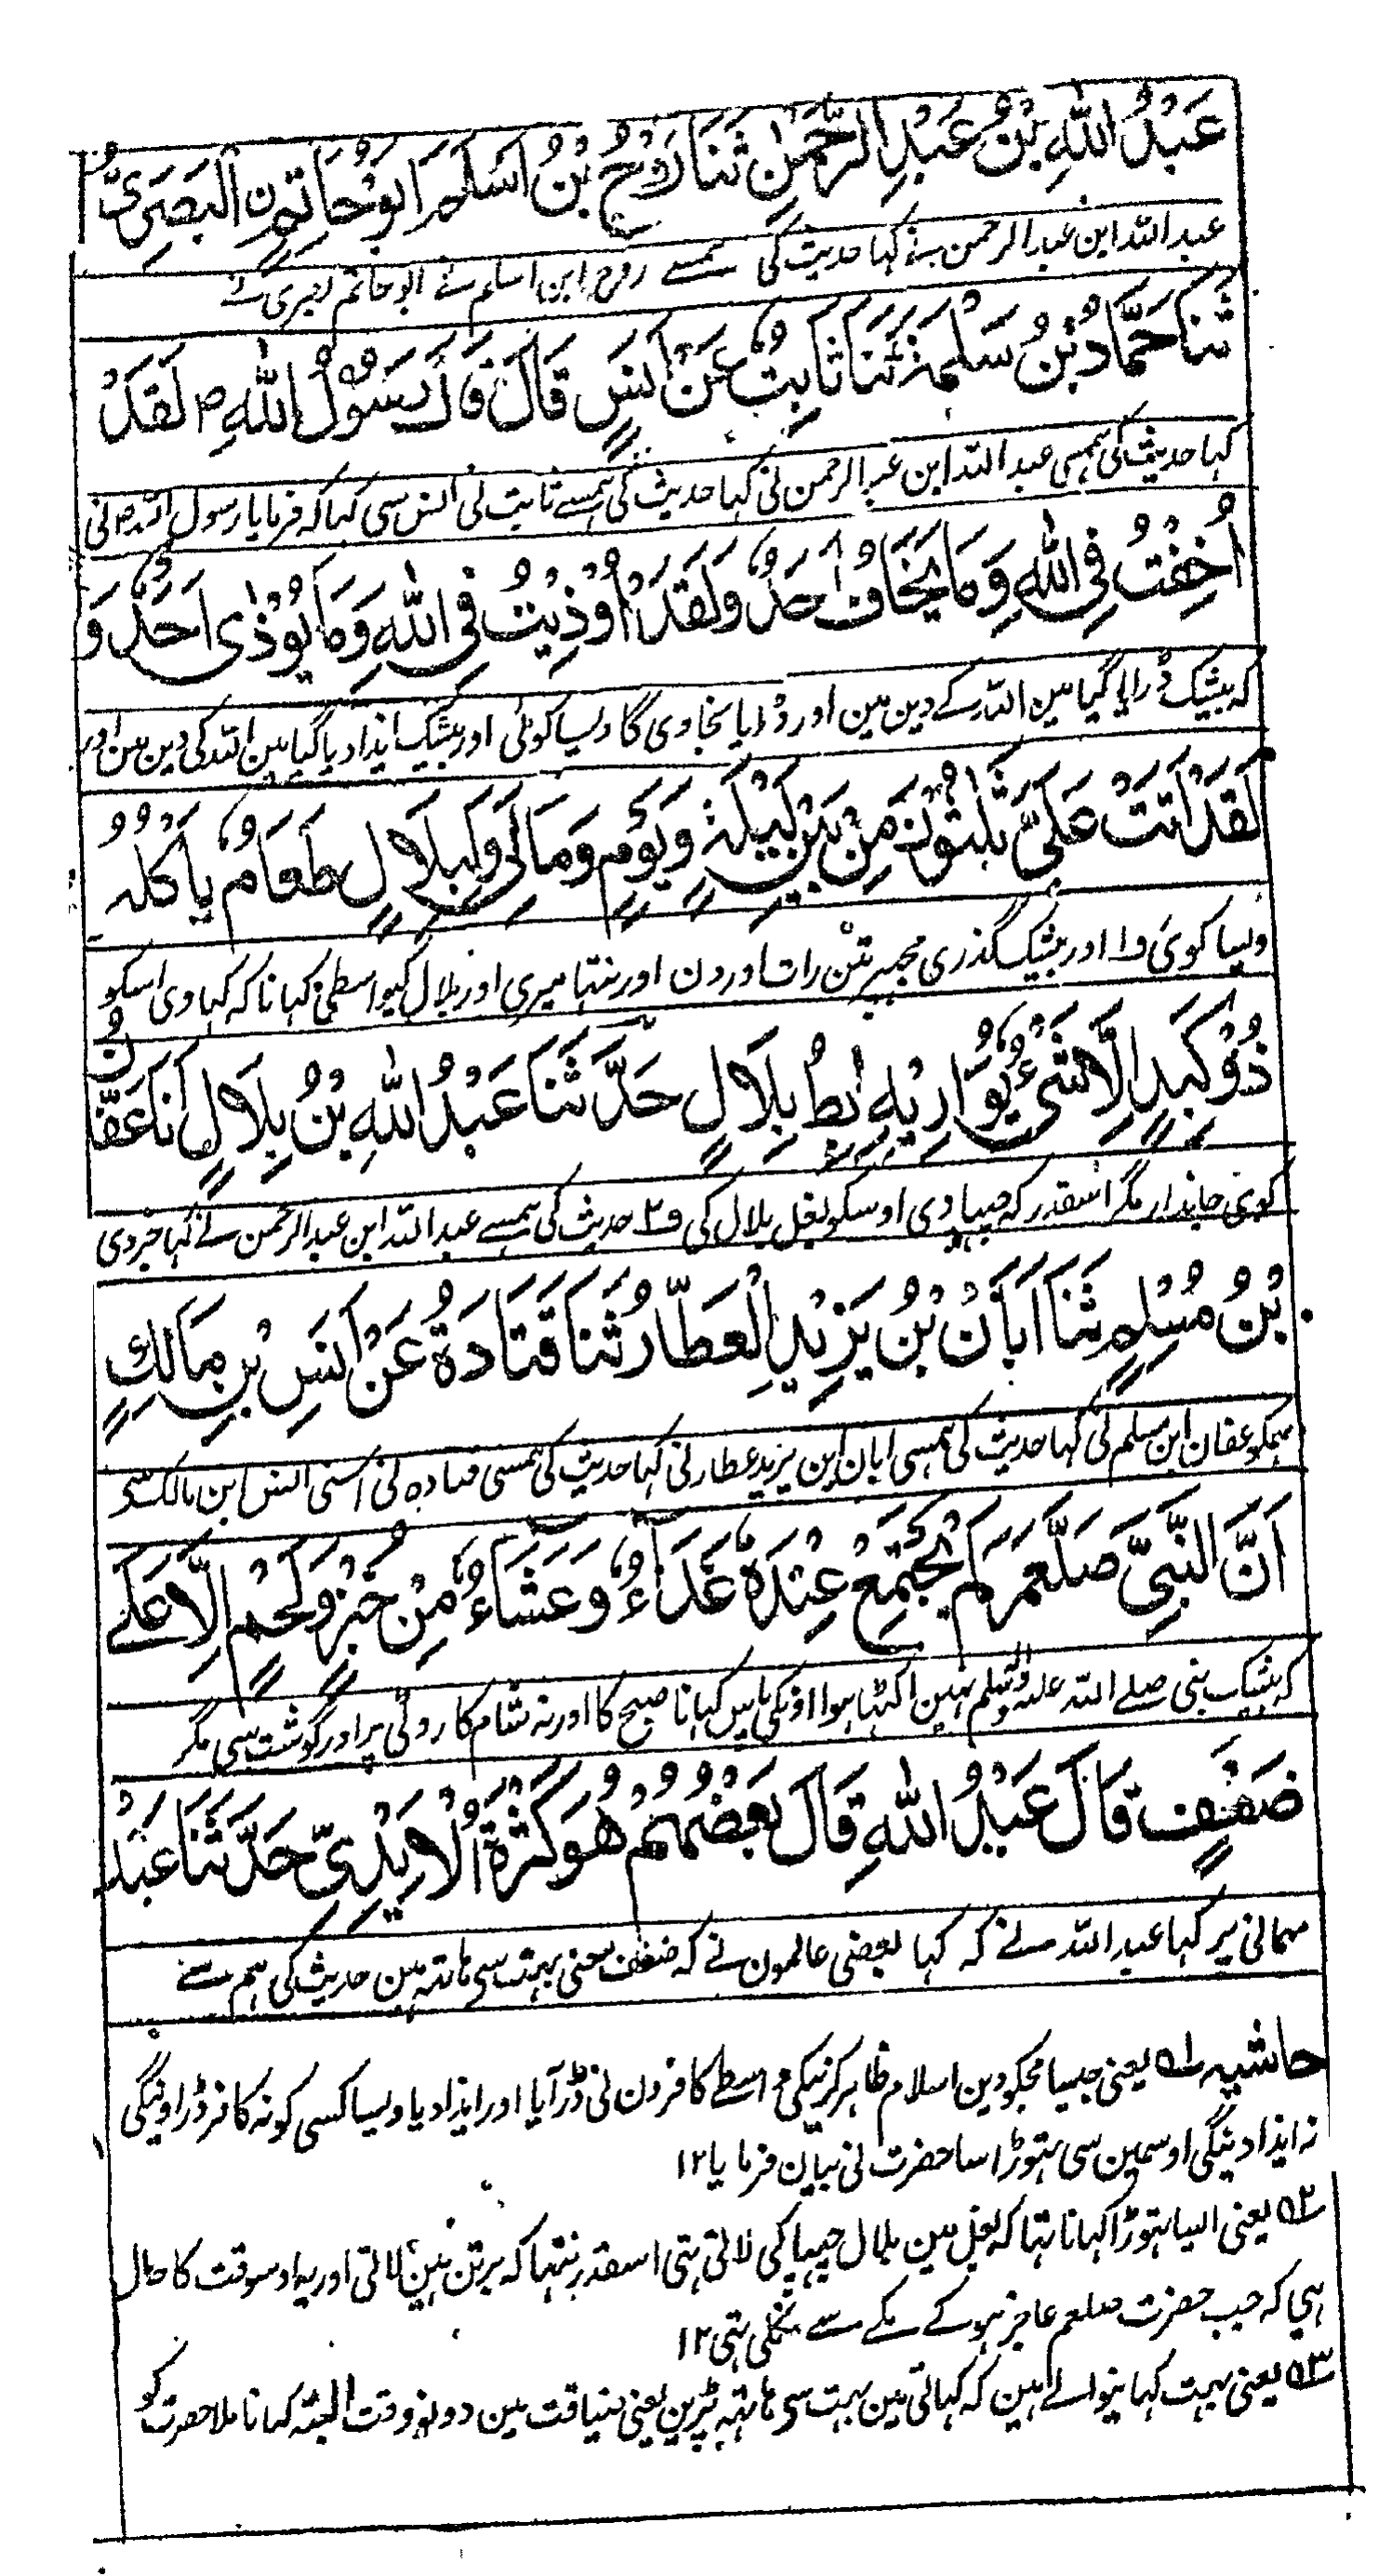 عَبْدُ اللهِ بْنُ عَبْدِ الرَّحْمٰنِ ثَنَا رَوْحُ بْنُ اَسْلَمَ اَبُوْ حَاتِمِ نِ الْبَصَرِيُّ
عبد اللہ ابن عبد الرحمن نے کہا حدیث کی ہمسے روح ابن اسلم نے ابو حاتم بصری نے
ثَنَا حَمَّادُ بْنُ سَلَمَةَ ثَنَا ثَابِتٌ عَنْ اَنَسٍ قَالَ قَالَ رَسُوْلُ اللهِ ص لَقَدْ
کہا حدیث کی ہمسی عبد اللہ ابن عبد الرحمن نی کہا حدیث کی ہمسے ثابت نی انس سی کہا کہ فرمایا رسول اللہ ص نی
اُخِفْتُ فِي اللهِ وَمَا يُخَافُ اَحَدٌ وَلَقَدْ اُوْذِيْتُ فِي اللهِ وَمَا يُوْذٰى اَحَدٌ وَ
کہ بیشک ڈرایا گیا مین اللہ کے دین مین اور ڈرایا نجاوی گا ویسا کوئی اور بیشک ایذا دیا گیا مین اللہ کی دین مین اور
لَقَدْ اَتَتْ عَلَيَّ ثَلٰثُوْنَ مِنْ بَيْنِ لَيْلَةٍ وَيَوْمٍ وَمَا لِيْ وَلِبِلَالٍ طَعَامٌ يَاْكُلُهُ
ویسا کوئی ف۱ اور بیشک گذری مجہپر تیس رات اور دن اور نتہا میری اور بلال کیواسطی کہانا کہ کہاوی اسکو
ذُوْ كَبِدٍ اِلَّا شَيْءٌ يُوَارِيْهِ اِبِطُ بِلَالٍ حَدَّثَنَا عَبْدُ اللهِ بْنُ بِلَالٍ اَنَا عَفَّانُ
کوئی جاندار مگر اسقدر کہ چہپا دی اوسکو بغل بلال کی ف۲ حدیث کی ہمسے عبد اللہ ابن عبد الرحمن نے کہا خبر دی
بْنُ مُسْلِمٍ ثَنَا اَبَانُ بْنُ يَزِيْدِ الْعَطَّارُ ثَنَا قَتَادَةُ عَنْ اَنَسِ بْنِ مَالِكٍ
ہمکو عفان ابن مسلم نی کہا حدیث کی ہمسی ابان ابن یزید عطار نی کہا حدیث کی ہمسی قتادہ نی اسنی انس ابن مالک سی
اَنَّ النَّبِيَّ صَلَّعَمَ لَمْ يَجْتَمِعْ عِنْدَهُ غَدَاءٌ وَعَشَاءٌ مِنْ خُبْزٍ وَلَحْمٍ اِلَّا عَلٰے
کہ بیشک نبی صلے اللہ علیہ وآلہ وسلم نہین اکٹہا ہوا اونکی پاس کہانا صبح کا اور نہ شام کا روٹی پر اور گوشت سی مگر
ضَفَفٍ قَالَ عَبْدُ اللهِ قَالَ بَعْضُهُمْ هُوَ كَثْرَةُ الْاَيْدِيّ حَدَّثَنَا عَبْدُ
مہمانی پر کہا عبد اللہ نے کہ کہا بعضی عالمون نے کہ ضفف یعنی بہت سی ہاتہ ہین حدیث کی ہم سے
حاشیہ ف۱ یعنی جیسا مجکو دین اسلام ظاہر کرنیکی واسطے کافرون نی ڈرآیا اور ایذا دیا ویسا کسی کو نہ کافر ڈراوینگی
نہ ایذا دینگی اوسمین سی تہوڑا سا حضرت نی بیان فرمایا ۱۲
ف۲ یعنی ایسا تہوڑا کہانا تہا کہ بغل مین بلال چہپا کی لاتی تہی اسقدر نتہا کہ برتن مین لاتی اور یہ اوسوقت کا حال
ہی کہ جب حضرت صلعم عاجز ہو کے مکے سے نکلی تہی ۱۲
ف۳ یعنی بہت کہانیوالے ہین کہ کہاتی مین بہت سی ہاتہ پڑین یعنی ضیافت مین دونو وقت البتہ کہانا ملا حضرت کو